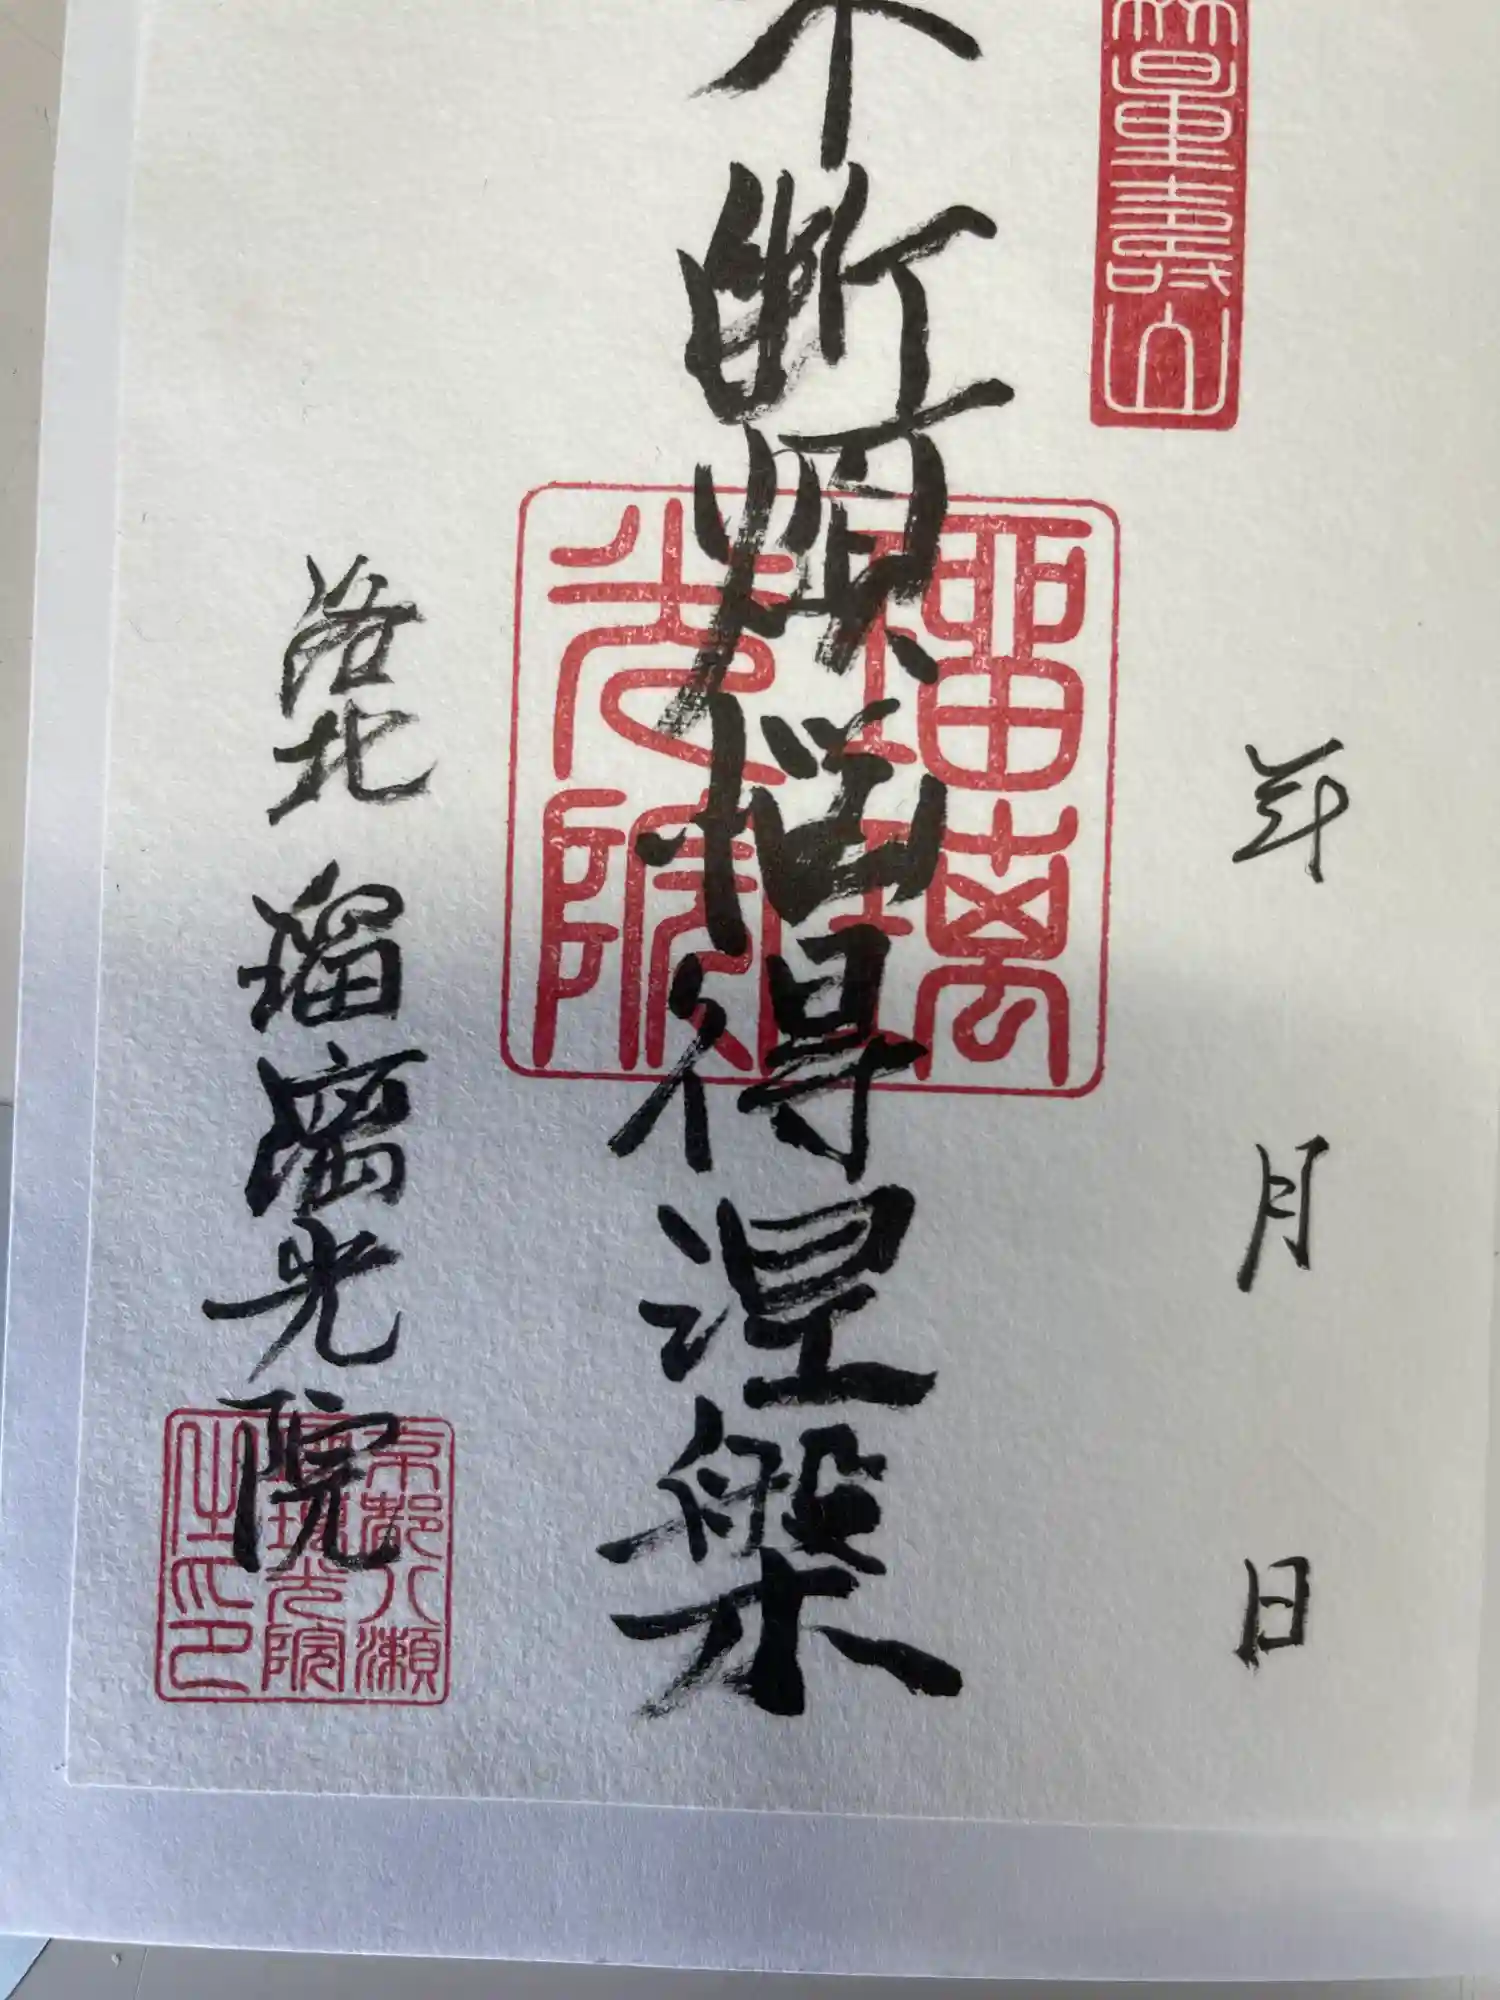 量壽山
年 月 日
不断煩悩得涅槃
瑠璃
光院
洛北 瑠璃光院
京都八瀬
瑠璃光院
之印